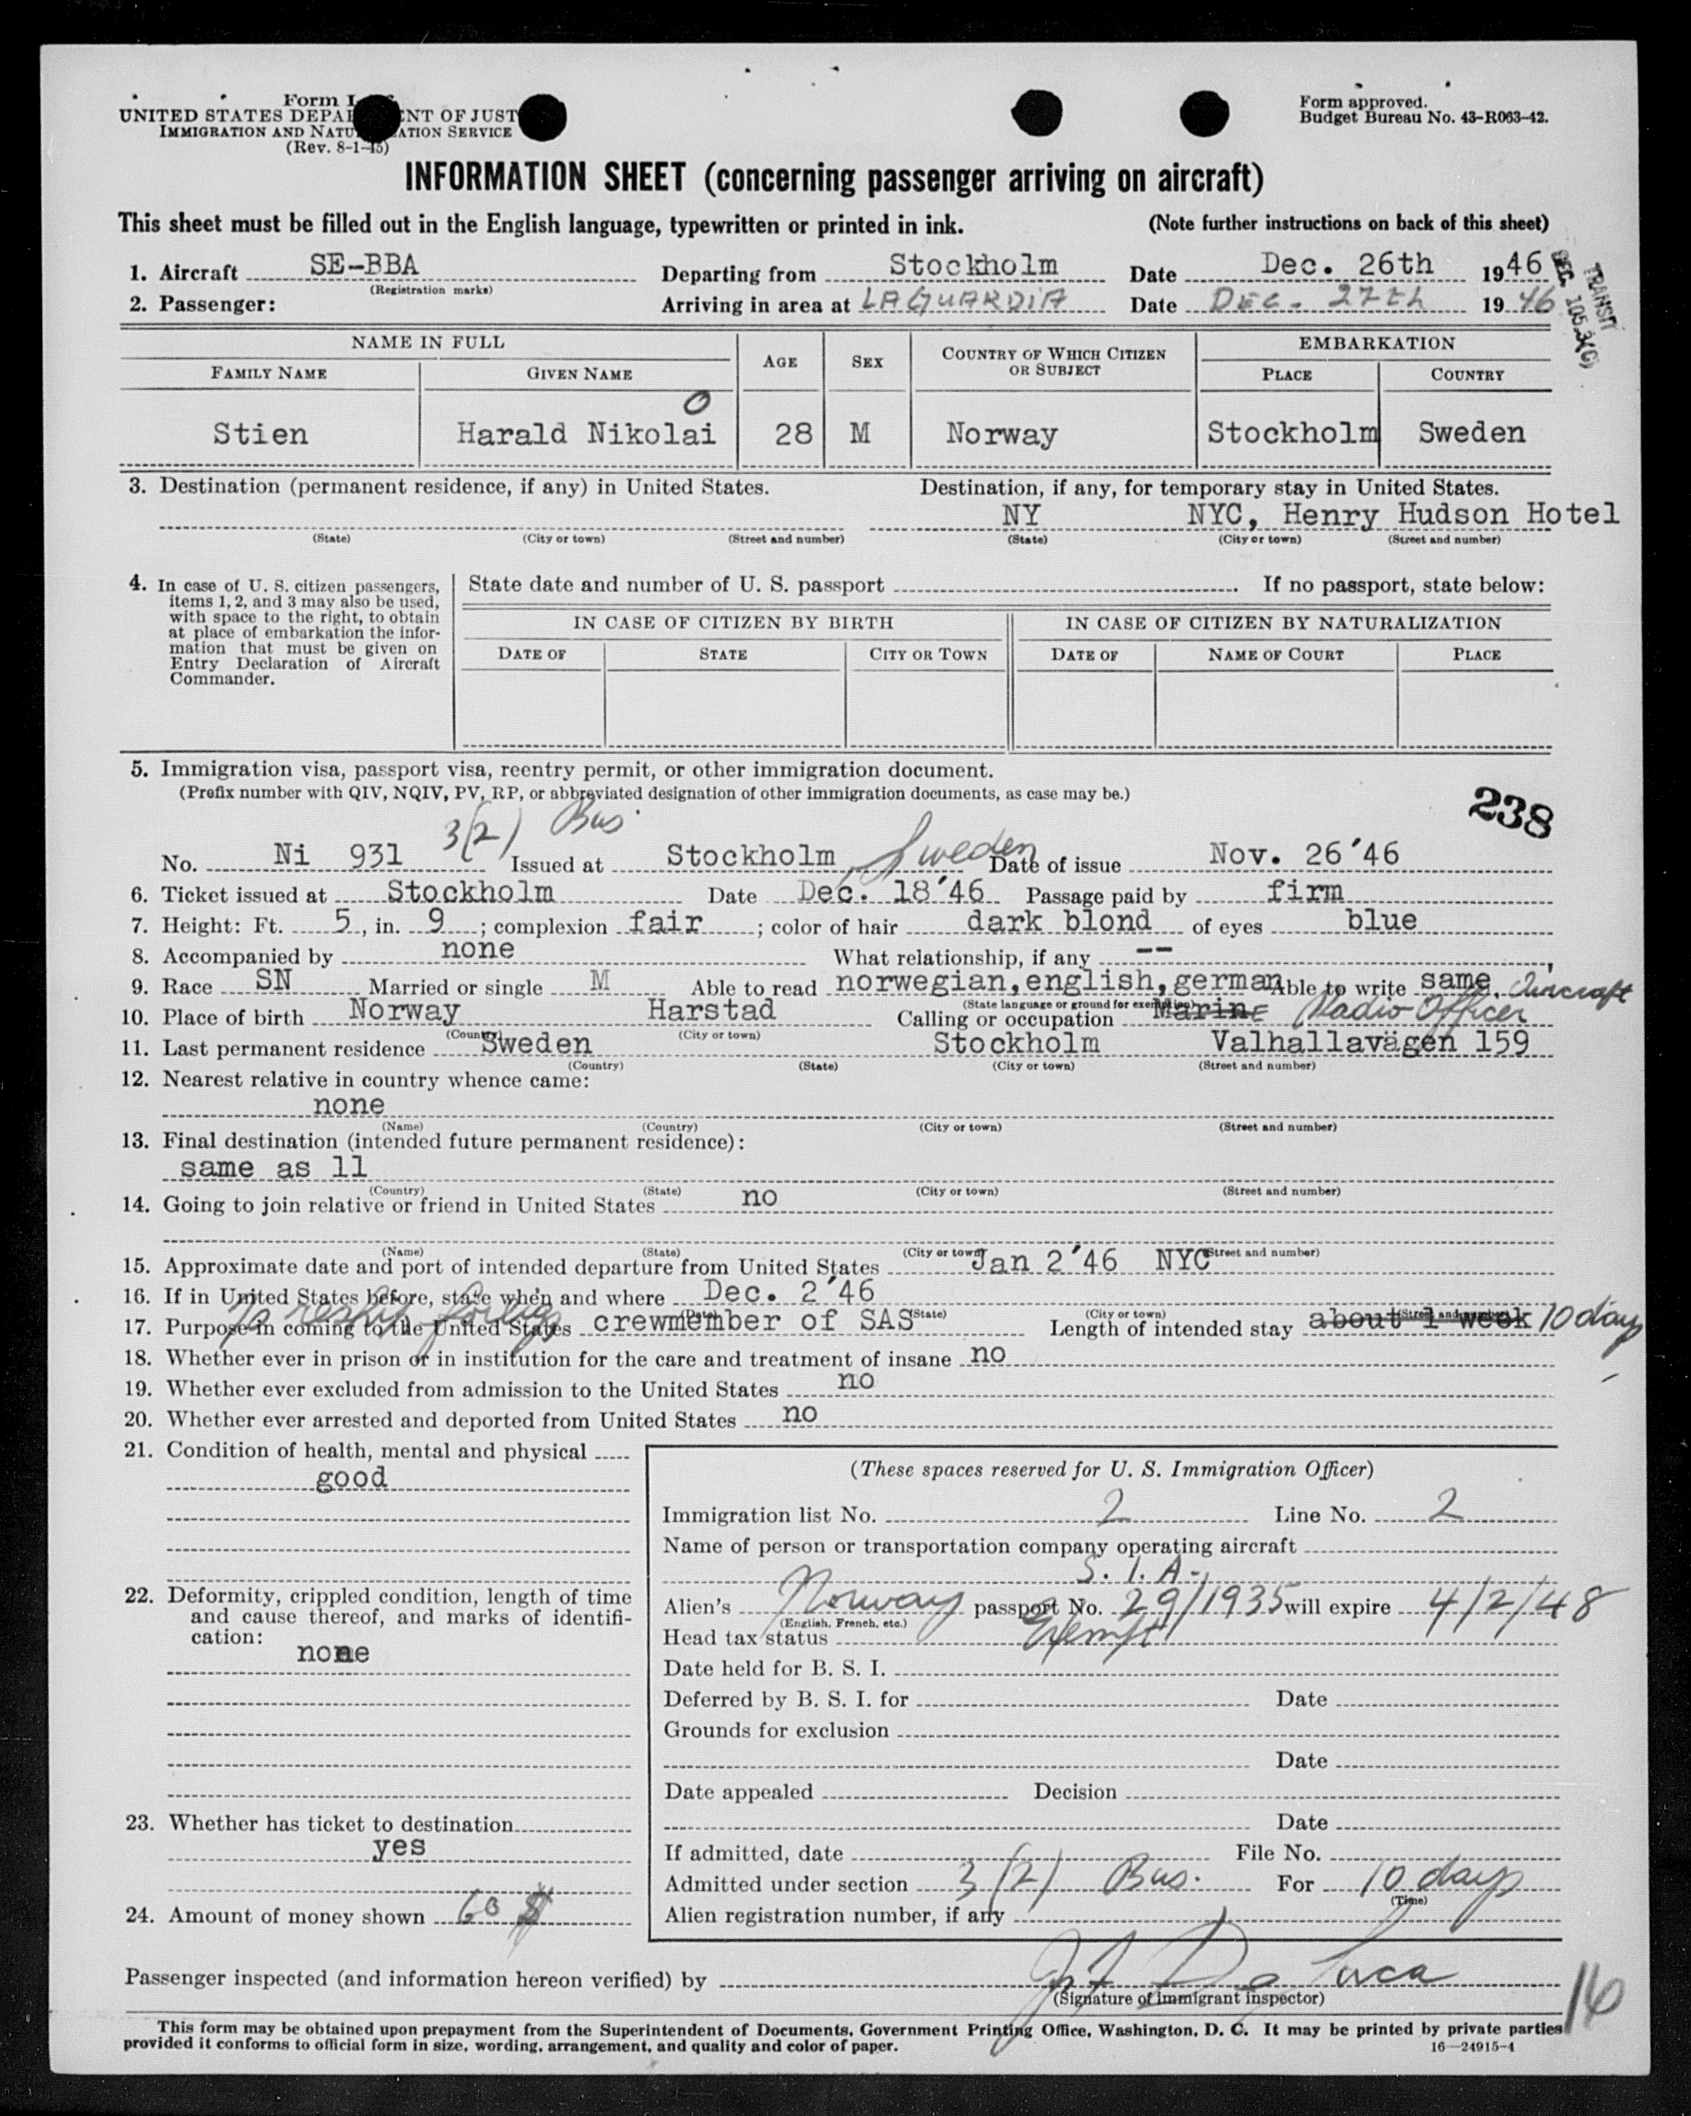 Form I-
UNITED STATES DEPA ENT OF JUST
IMMIGRATION AND NATU ATION SERVICE
(Rev. 8-1-45)
Form approved.
Budget Bureau No. 43-R063-42.
INFORMATION SHEET (concerning passenger arriving on aircraft)
This sheet must be filled out in the English language, typewritten or printed in ink. (Note further instructions on back of this sheet)
1. Aircraft SE-BBA Departing from Stockholm Date Dec. 26th 1946
(Registration marks)
2. Passenger: Arriving in area at LAGUARDIA Date DEC. 27th 1946
TRANSIT
DEC. 105.3(C)
NAME IN FULL AGE SEX COUNTRY OF WHICH CITIZEN OR SUBJECT EMBARKATION
FAMILY NAME GIVEN NAME PLACE COUNTRY
O
Stien Harald Nikolai 28 M Norway Stockholm Sweden
3. Destination (permanent residence, if any) in United States. Destination, if any, for temporary stay in United States.
NY NYC, Henry Hudson Hotel
(State) (City or town) (Street and number) (State) (City or town) (Street and number)
4. In case of U. S. citizen passengers, items 1, 2, and 3 may also be used, with space to the right, to obtain at place of embarkation the information that must be given on Entry Declaration of Aircraft Commander.
State date and number of U. S. passport . If no passport, state below:
IN CASE OF CITIZEN BY BIRTH IN CASE OF CITIZEN BY NATURALIZATION
DATE OF STATE CITY OR TOWN DATE OF NAME OF COURT PLACE
5. Immigration visa, passport visa, reentry permit, or other immigration document.
(Prefix number with QIV, NQIV, PV, RP, or abbreviated designation of other immigration documents, as case may be.)
238
3(2) Bus.
No. Ni 931 Issued at Stockholm, Sweden Date of issue Nov. 26'46
6. Ticket issued at Stockholm Date Dec. 18'46 Passage paid by firm
7. Height: Ft. 5, in. 9; complexion fair; color of hair dark blond of eyes blue
8. Accompanied by none What relationship, if any --
9. Race SN Married or single M Able to read norwegian,english,german Able to write same
(State language or ground for exemption)
10. Place of birth Norway Harstad Calling or occupation Marine Aircraft Radio Officer
(Country) (City or town)
11. Last permanent residence Sweden Stockholm Valhallavägen 159
(Country) (State) (City or town) (Street and number)
12. Nearest relative in country whence came:
none
(Name) (Country) (City or town) (Street and number)
13. Final destination (intended future permanent residence):
same as 11
(Country) (State) (City or town) (Street and number)
14. Going to join relative or friend in United States no
(Name) (State) (City or town) (Street and number)
15. Approximate date and port of intended departure from United States Jan 2'46 NYC
16. If in United States before, state when and where Dec. 2'46
(Date) (State) (City or town) (Street and number)
To reship foreign
17. Purpose in coming to the United States crewmember of SAS Length of intended stay about 1 week 10 days
18. Whether ever in prison or in institution for the care and treatment of insane no
19. Whether ever excluded from admission to the United States no
20. Whether ever arrested and deported from United States no
21. Condition of health, mental and physical
good
22. Deformity, crippled condition, length of time and cause thereof, and marks of identification:
none
23. Whether has ticket to destination
yes
24. Amount of money shown 60 $
(These spaces reserved for U. S. Immigration Officer)
Immigration list No. 2 Line No. 2
Name of person or transportation company operating aircraft
S. I. A.
Alien's Norway passport No. 29/1935 will expire 4/2/48
(English, French, etc.)
Head tax status Exempt
Date held for B. S. I.
Deferred by B. S. I. for Date
Grounds for exclusion
Date
Date appealed Decision
Date
If admitted, date File No.
Admitted under section 3(2) Bus. For 10 days
(Time)
Alien registration number, if any
Passenger inspected (and information hereon verified) by
(Signature of immigrant inspector)
16
This form may be obtained upon prepayment from the Superintendent of Documents, Government Printing Office, Washington, D. C. It may be printed by private parties
provided it conforms to official form in size, wording, arrangement, and quality and color of paper. 16—24915-4